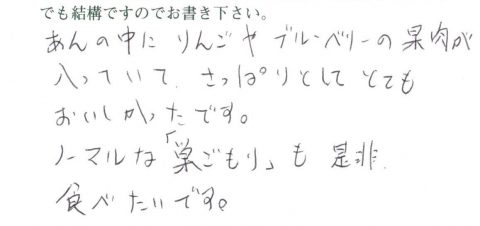 でも結構ですのでお書き下さい。
あんの中に りんごや ブルーベリーの果肉が
入っていて、さっぱりとしてとても
おいしかったです。
ノーマルな「巣ごもり」も是非、
食べたいです。